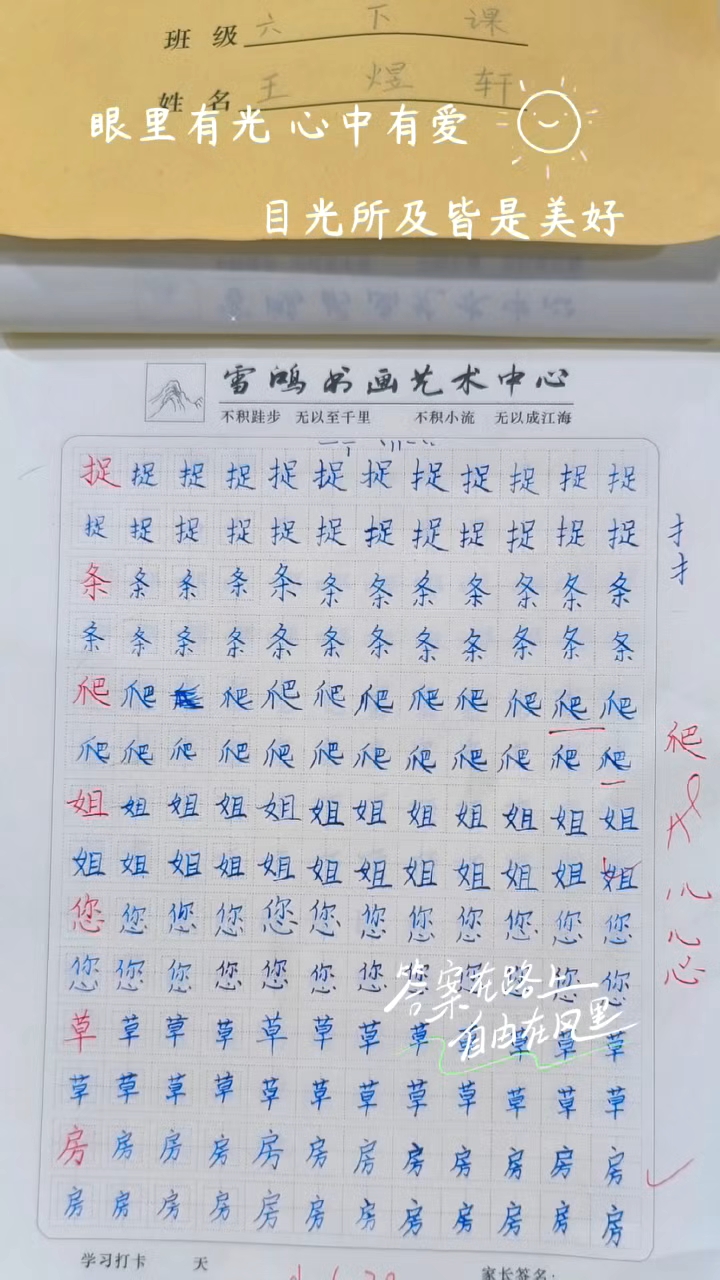 班级 六下课
姓名 王煜轩
眼里有光 心中有爱
目光所及皆是美好
雪鸿书画艺术中心
不积跬步 无以至千里 不积小流 无以成江海
捉捉捉捉捉捉捉捉捉捉捉捉
捉捉捉捉捉捉捉捉捉捉捉捉
扌
扌
条条条条条条条条条条条条
条条条条条条条条条条条条
爬爬爬爬爬爬爬爬爬爬爬
爬爬爬爬爬爬爬爬爬爬爬爬
爬
姐姐姐姐姐姐姐姐姐姐姐姐
姐姐姐姐姐姐姐姐姐姐姐姐
您您您您您您您您您您您您
您您您您您您您您您您您
心
答案在路上
自由在风里
草草草草草草草草草草草
草草草草草草草草草草草草
房房房房房房房房房房房房
房房房房房房房房房房房房
学习打卡 天
家长签名: